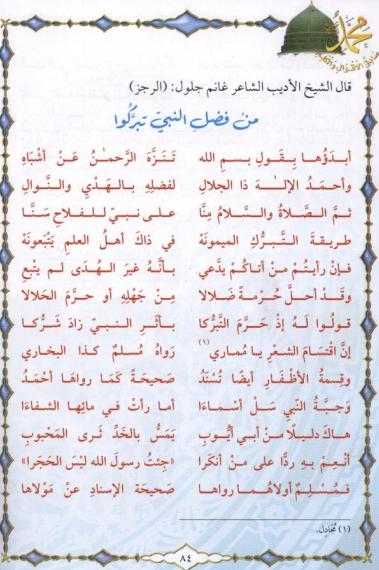 محمد
قال الشيخ الأديب الشاعر غانم جلول: (الرجز)
من فضل النبيّ تبرَّكُوا
أبدَؤُها بِقَولِ بسمِ الله تَنَزَّهَ الرَّحمٰنُ عَنْ أشْبَاهِ
وأحمَدُ الإلـٰـهَ ذا الجلالِ لفضلِهِ بالهَدْيِ والنَّوالِ
ثمَّ الصَّلاةُ والسَّلامُ مِنَّا على نبيٍّ للفلاحِ سَنَّا
طريقةَ التَّبرُّكِ الميمونَهْ في ذاكَ أهلُ العلمِ يَتْبَعونَهْ
فإنْ رأيتُمْ مَنْ أتاكُمْ يدَّعي بأنَّهُ غيرَ الهُدَى لم يتبعِ
وقَدْ أحلَّ حُرمةً ضَلالا مِنْ جَهْلِهِ أو حرَّمَ الحَلالا
قولوا لَهُ إذْ حَرَّمَ التَّبَرُّكا بأثَرِ النـبيِّ زادَ شَرُّكا
إنَّ اقتسَامَ الشَّعرِ يا مُماري(١) رَواهُ مُسلمٌ كذا البخاري
وقِسمةُ الأظفَارِ أيضًا تُسْنَدُ صَحيحَةً كَمَا رواهَا أحْمَدُ
وَجبَّةُ النَّبي سَلْ أسْمَاءَا أما رأتْ في مائِها الشفاءَا
هاكَ دليلاً مِنْ أبي أيُّوبِ يَمَسُّ بالخَدِّ ثرى المَحْبوبِ
أنْعِمْ بِهِ ردًّا على مَنْ أنكَرا «جِئتُ رسولَ الله ليْسَ الحَجَرا»
فَمُسْلِمٌ أولاهُـمـا رواها صَحيحَةَ الإسنادِ عَنْ مَوْلاها
(١) مُجَادل.
٨٤